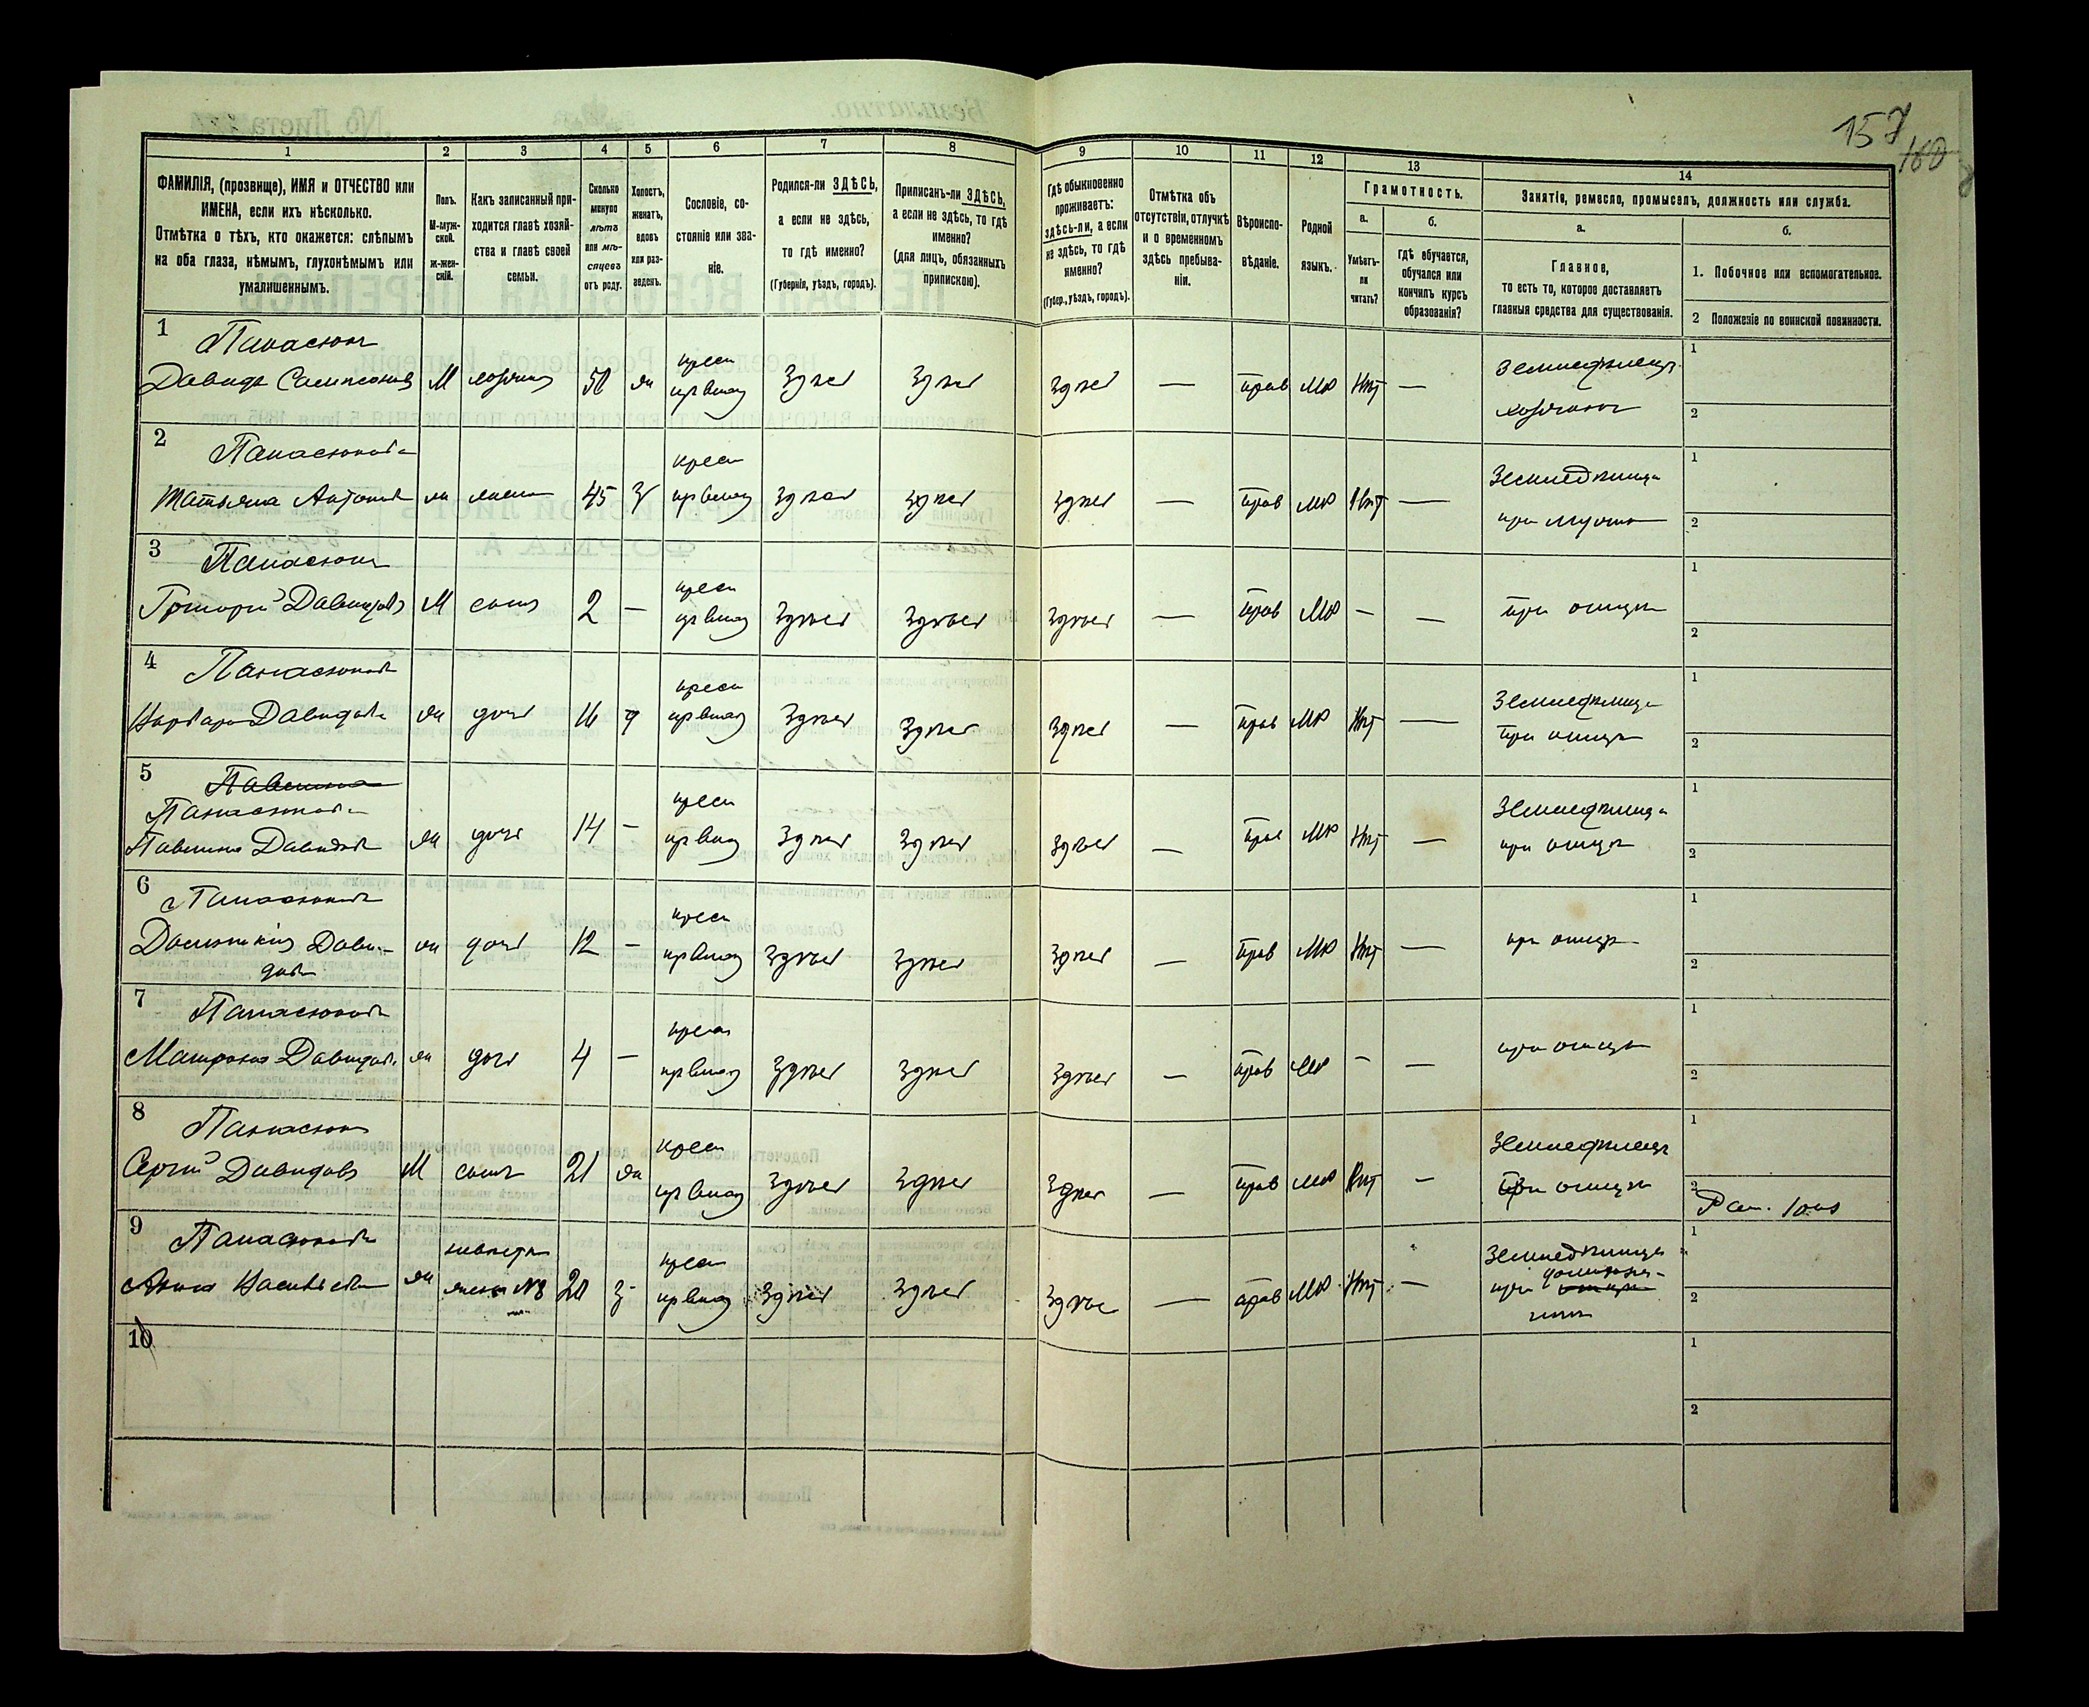 157
160
1 2 3 4 5 6 7 8 9 10 11 12 13 14
ФАМИЛІЯ, (прозвище), ИМЯ и ОТЧЕСТВО или
ИМЕНА, если ихъ нѣсколько.
Отмѣтка о тѣхъ, кто окажется: слѣпымъ
на оба глаза, нѣмымъ, глухонѣмымъ или
умалишеннымъ.
Полъ.
М-муж-
ской.
ж-жен-
скій.
Какъ записанный при-
ходится главѣ хозяй-
ства и главѣ своей
семьи.
Сколько
минуло
лѣтъ
или мѣ-
сяцевъ
отъ роду.
Холостъ,
женатъ,
вдовъ
или раз-
веденъ.
Сословіе, со-
стояніе или зва-
ніе.
Родился-ли ЗДѢСЬ,
а если не здѣсь,
то гдѣ именно?
(Губернія, уѣздъ, городъ).
Приписанъ-ли ЗДѢСЬ,
а если не здѣсь, то гдѣ
именно?
(для лицъ, обязанныхъ
припискою).
Гдѣ обыкновенно
проживаетъ:
здѣсь-ли, а если
не здѣсь, то гдѣ
именно?
(Губер., уѣздъ, городъ).
Отмѣтка объ
отсутствіи, отлучкѣ
и о временномъ
здѣсь пребыва-
ніи.
Вѣроиспо-
вѣданіе.
Родной
языкъ.
Грамотность.
а.
Умѣетъ-
ли
читать?
б.
Гдѣ обучается,
обучался или
кончилъ курсъ
образованія?
Занятіе, ремесло, промыселъ, должность или служба.
а.
Главное,
то есть то, которое доставляетъ
главныя средства для существованія.
б.
1. Побочное или вспомогательное.
2 Положеніе по воинской повинности.
1 Панасюкъ
Давидъ Сампсоновъ М хозяинъ 50 ж крест здѣсь здѣсь здѣсь — прав Мр Нѣт —
Земледѣлецъ
хозяинъ
2 Панасюкова
Татьяна Антонов ж жена 45 з крест здѣсь здѣсь здѣсь — прав Мр Нѣт —
Земледѣлица
при мужѣ
3 Панасюкъ
Григорій Давидовъ М сынъ 2 — крест здѣсь здѣсь здѣсь — прав Мр — — при отцѣ
4 Панасюкова
Варвара Давидова ж дочь 16 д крест здѣсь здѣсь здѣсь — прав Мр Нѣт —
Земледѣлица
при отцѣ
5 Павлина
Панасюкова
Павлина Давидова ж дочь 14 — крест здѣсь здѣсь здѣсь — прав Мр Нѣт —
Земледѣлица
при отцѣ
6 Панасюкова
Домникія Дави-
дова ж дочь 12 — крест здѣсь здѣсь здѣсь — прав Мр Нѣт — при отцѣ
7 Панасюкова
Матрона Давидова ж дочь 4 — крест здѣсь здѣсь здѣсь — прав Мр — — при отцѣ
8 Панасюкъ
Сергій Давидовъ М сынъ 21 ж крест здѣсь здѣсь здѣсь — прав Мр Нѣт —
Земледѣлецъ
при отцѣ
9 Панасюкова
Анна Васильева ж невѣстка
жена №8 20 з крест здѣсь здѣсь здѣсь — прав Мр Нѣт —
Земледѣлица
при
10
1
2